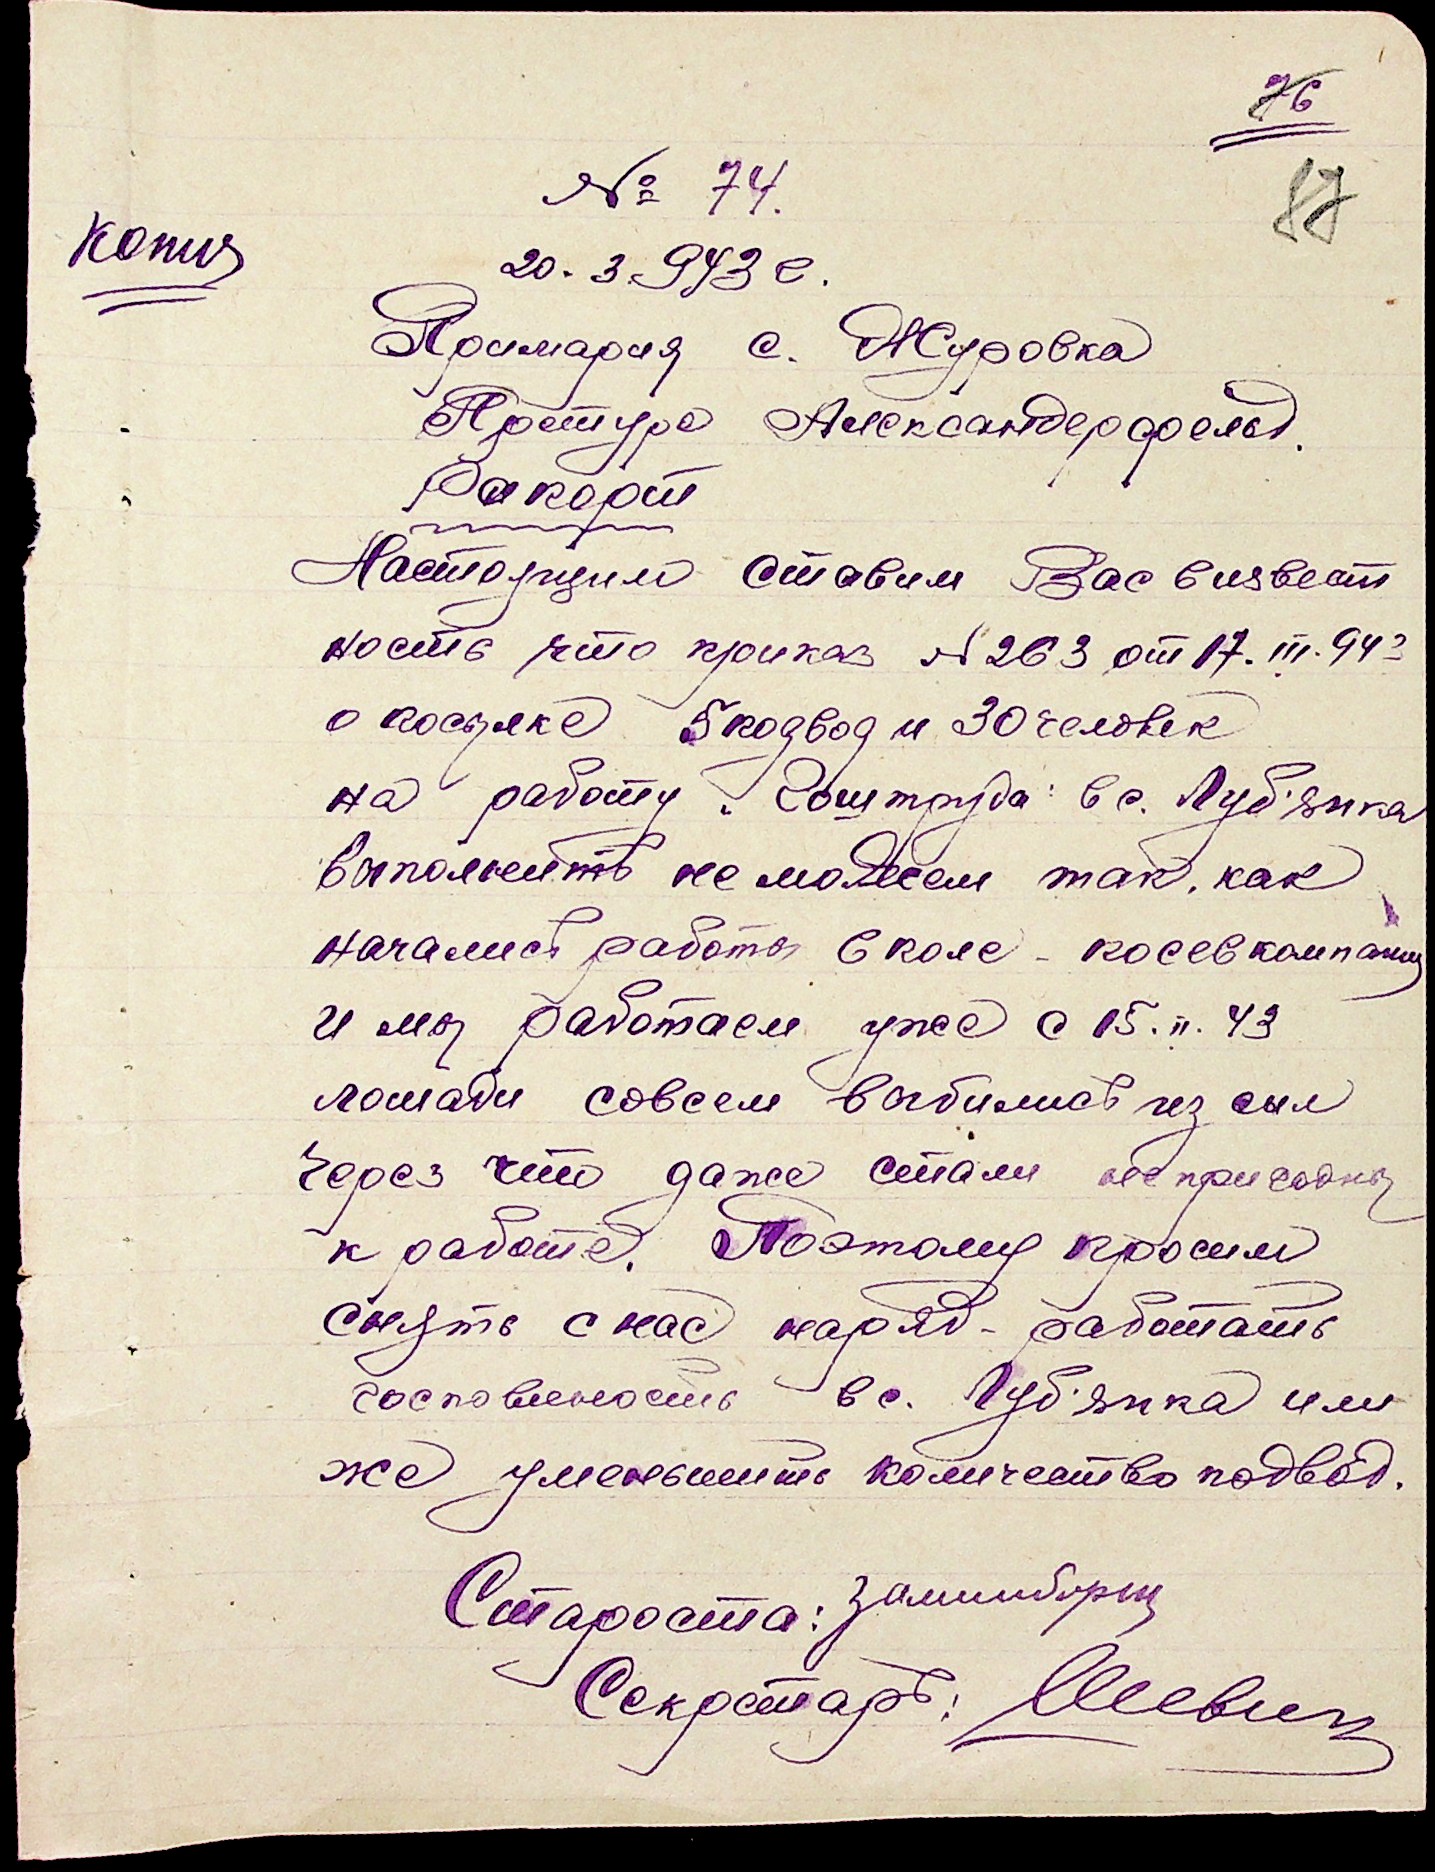 76
87
№ 74.
Копия
20. 3. 943 г.
Примария с. Журовка
Претуре Александерфельд.
Рапорт
Настоящим ставим Вас визвест
ность что приказ № 263 от 17. III. 943
о посылке 5 подвод и 30 человек
на работу в с. Луб'янка
выполнить не можем так, как
начались работы в поле - посевкомпании
и мы работаем уже с 15. II. 43
лошади совсем выбились из сил
через что даже стали непригодны
к работе. Поэтому просим
снять с нас наряд - работать
госповинность в с. Луб'янка или
же уменьшить количество подвод.
Староста:
Секретарь: